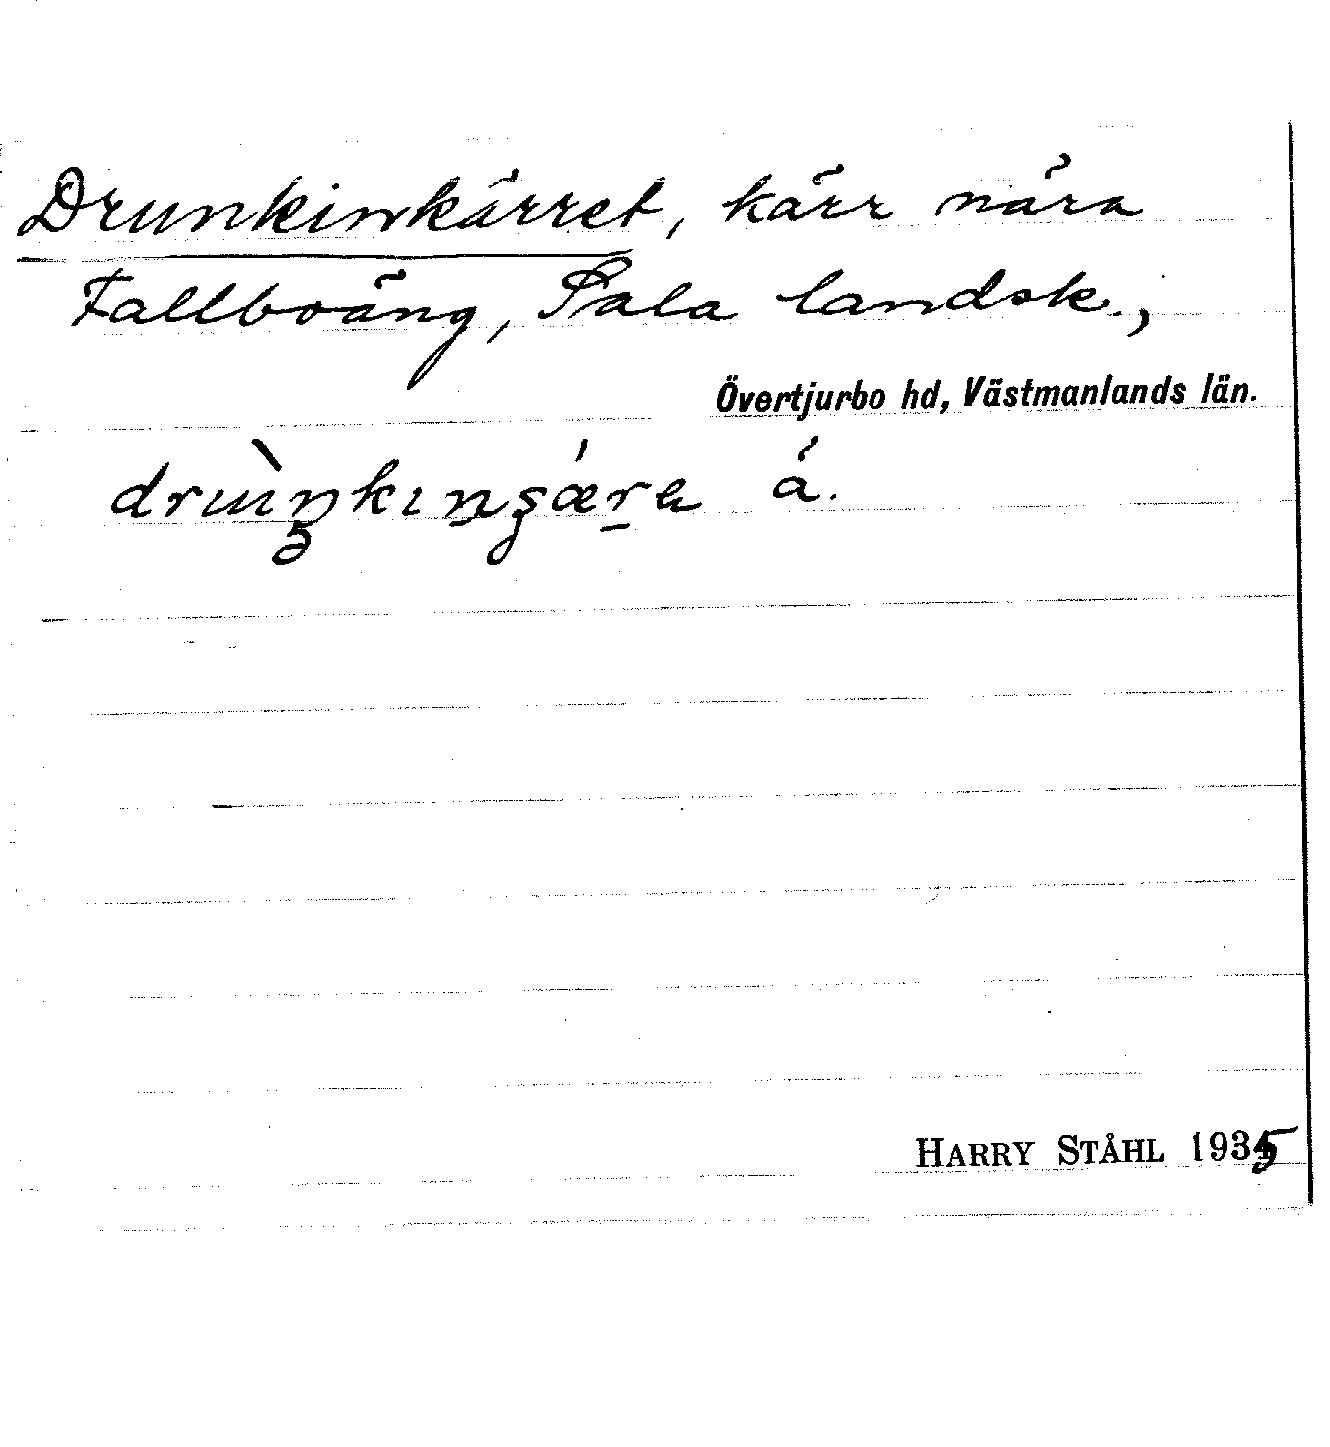 Drunkinkärret, kärr nära
Fallboäng, Sala landsk.,
Övertjurbo hd, Västmanlands län.
á.
HARRY STÅHL 1935